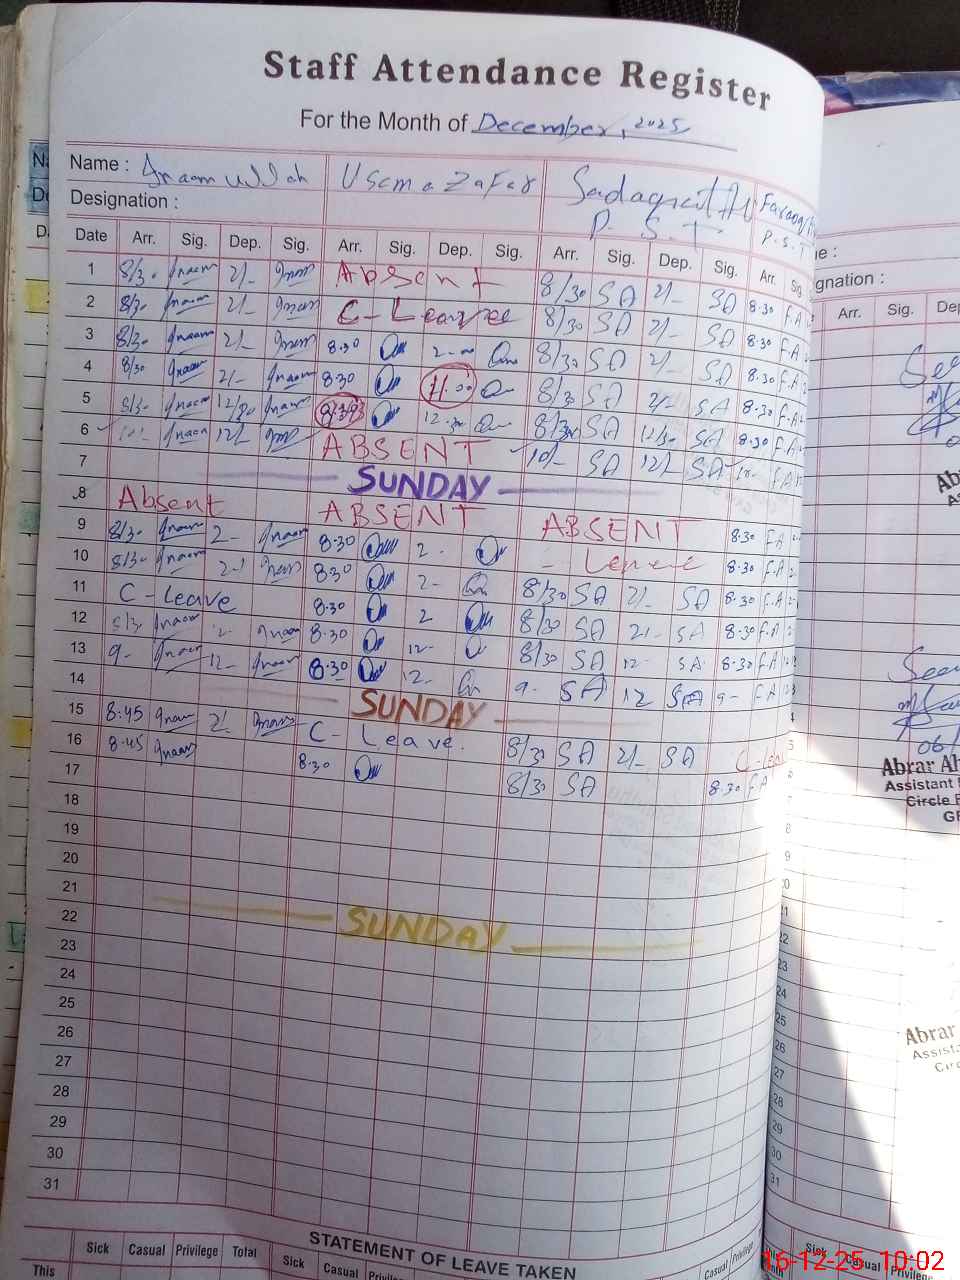 Staff Attendance Register
For the Month of December, 2025
Name : Inaamullah Usama Zafar Sadaqat Ali Farooq
Designation : P.S.T P.S.T
Date Arr. Sig. Dep. Sig. Arr. Sig. Dep. Sig. Arr. Sig. Dep. Sig. Arr. Sig.
1 8/30 Inaam 2/- Inaam Absent 8/30 SA 2/- SA 8.30 F.A
2 8/30 Inaam 2/- Inaam C-Leave 8/30 SA 2/- SA 8.30 F.A
3 8/30 Inaam 2/- Inaam 8.30 2-00 8/30 SA 2/- SA 8.30 F.A
4 8/30 Inaam 2/- Inaam 8.30 11.00 8/30 SA 2/- SA 8.30 F.A
5 8/30 Inaam 12/30 Inaam 8/30 12.30 8/30 SA 12/30 SA 8.30 F.A
6 10/- Inaam 12/- ABSENT 10/- SA 12/- SA 10- FA
7 SUNDAY
8 Absent ABSENT ABSENT 8.30 FA
9 8/30 Inaam 2- Inaam 8.30 2- - Leave 8.30 F.A
10 8/30 Inaam 2-1 Inaam 8.30 2- 8/30 SA 2/- SA 8.30 F.A
11 C-Leave 8.30 2 8/30 SA 2/- SA 8.30 F.A
12 8/30 Inaam 2- Inaam 8.30 12- 8/30 SA 12- SA 8.30 FA
13 9- Inaam 12- Inaam 8.30 12- 9- SA 12 SA 9- FA
14 SUNDAY
15 8:45 Inaam 2/- Inaam C-Leave. 8/30 SA 2/- SA C-Lea
16 8.45 Inaam 8.30 8/30 SA 8.30 FA
17
18
19
20
21 SUNDAY
22
23
24
25
26
27
28
29
30
31
STATEMENT OF LEAVE TAKEN
Sick Casual Privilege Total Sick Casual Casual Privilege
This
me :
gnation :
Arr. Sig. Dep
See
Ab
See
06/
Abrar Ah
Assistant
Circle
GP
Abrar
Assista
Circ
Sick Casual Privilege
16-12-25 10:02